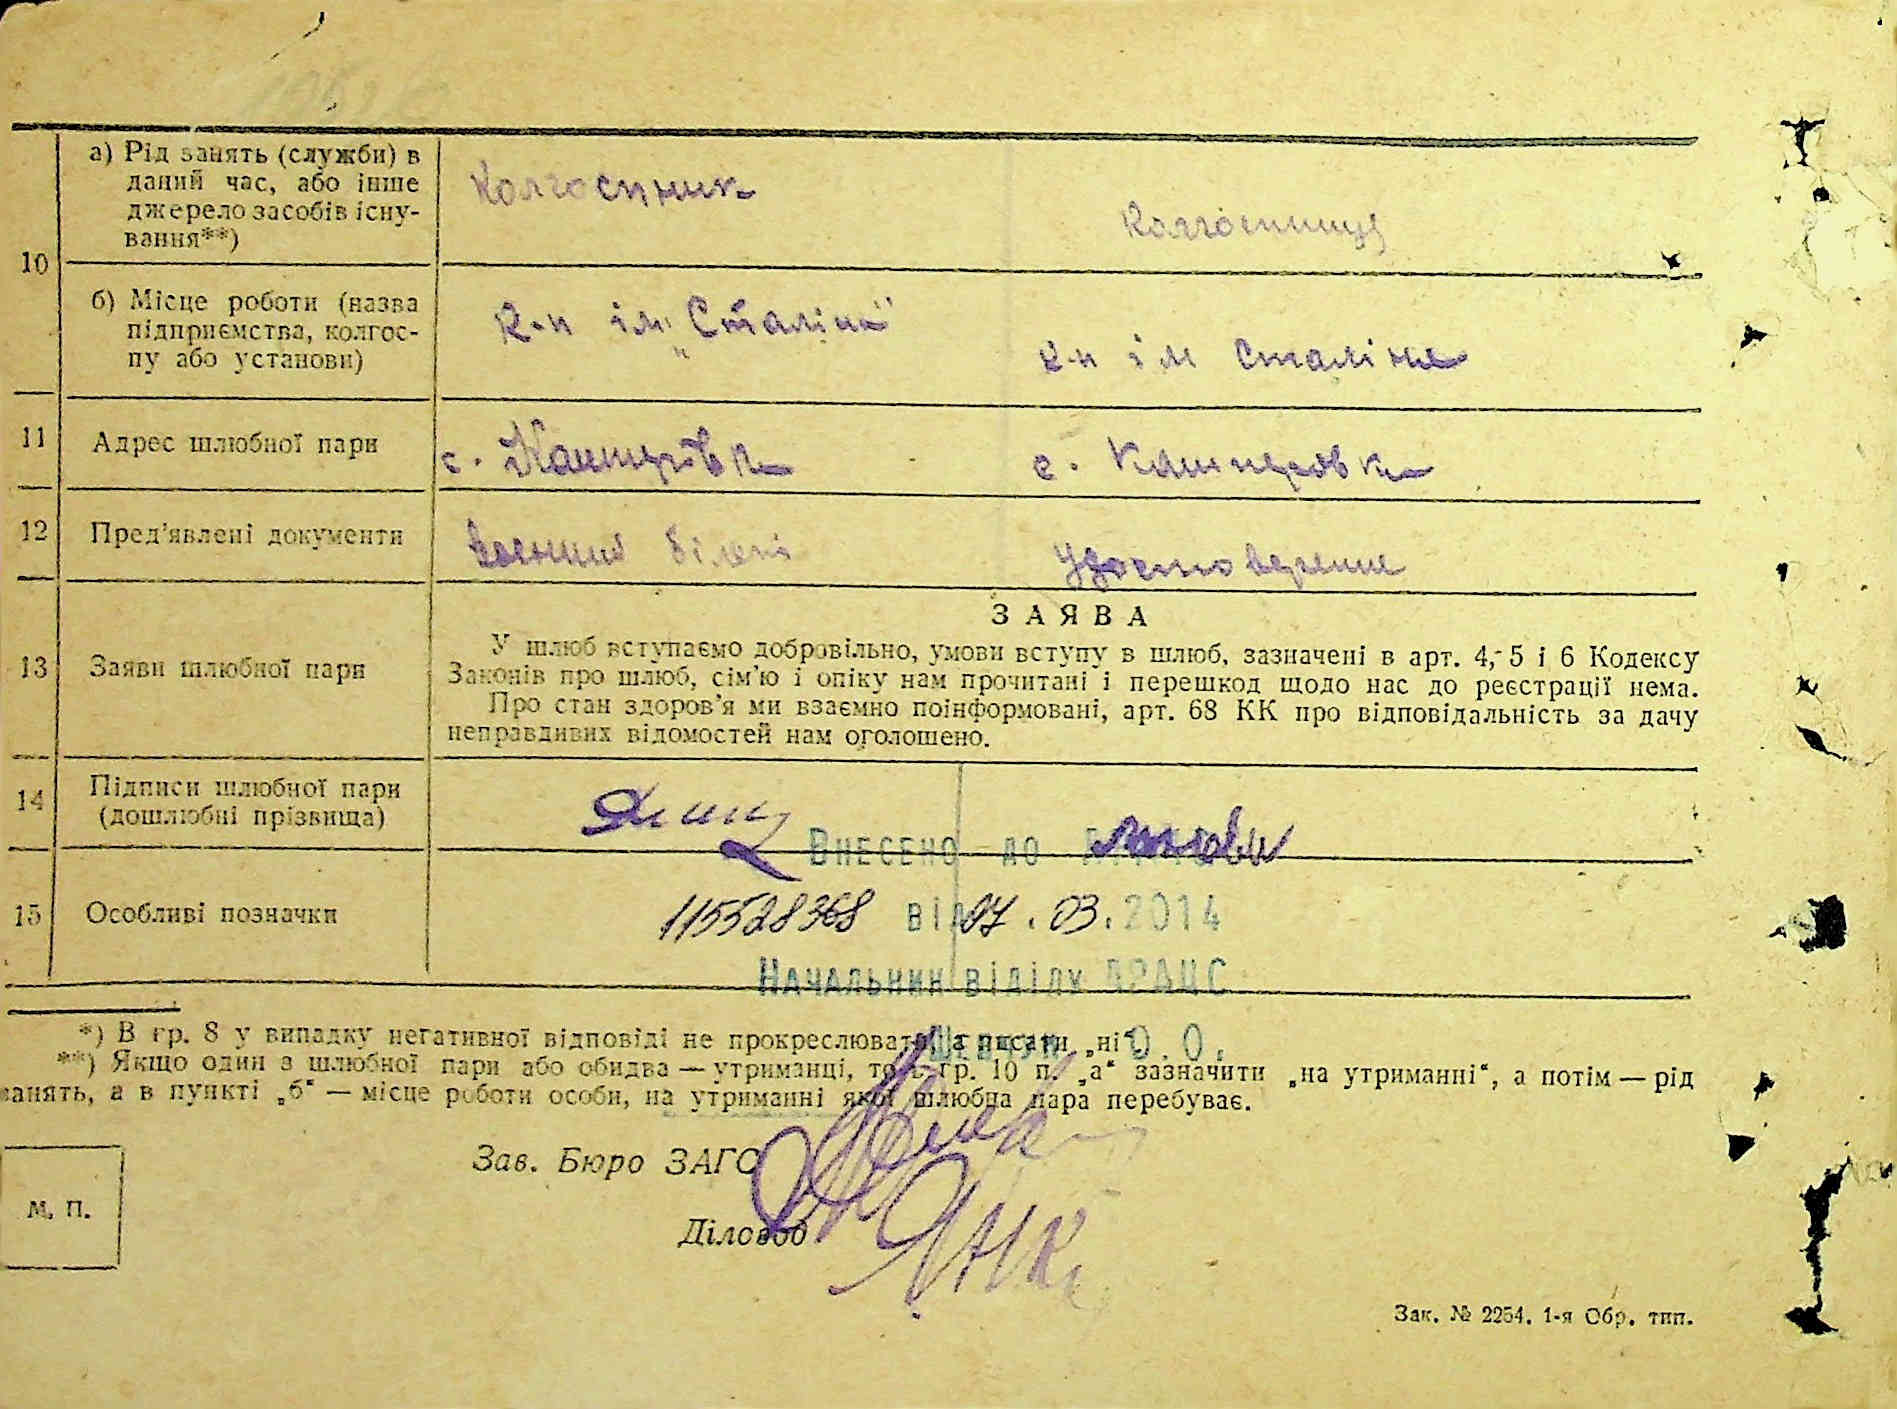 10
а) Рід занять (служби) в
даний час, або інше
джерело засобів існу-
вання**)
Колгоспник
Колгоспниця
б) Місце роботи (назва
підприємства, колгос-
пу або установи)
к-п ім. „Сталіна"
к-п ім Сталіна
11
Адрес шлюбної пари
с. Кашперовка
с. Кашперовка
12
Пред'явлені документи
Военний білет
Удостоверение
13
Заяви шлюбної пари
ЗАЯВА
У шлюб вступаємо добровільно, умови вступу в шлюб, зазначені в арт. 4, 5 і 6 Кодексу
Законів про шлюб, сім'ю і опіку нам прочитані і перешкод щодо нас до реєстрації нема.
Про стан здоров'я ми взаємно поінформовані, арт. 68 КК про відповідальність за дачу
неправдивих відомостей нам оголошено.
14
Підписи шлюбної пари
(дошлюбні прізвища)
Внесено до
15
Особливі позначки
115528368 від 07.03.2014
Начальник відділу ДРАЦС
Шевчук О.О.
*) В гр. 8 у випадку негативної відповіді не прокреслювати, а писати „ні".
**) Якщо один з шлюбної пари або обидва — утриманці, то в гр. 10 п. „а" зазначити „на утриманні", а потім — рід
занять, а в пункті „б" — місце роботи особи, на утриманні якої шлюбна пара перебуває.
Зав. Бюро ЗАГС
Діловод
М. П.
Зак. № 2254. 1-я Обр. тип.